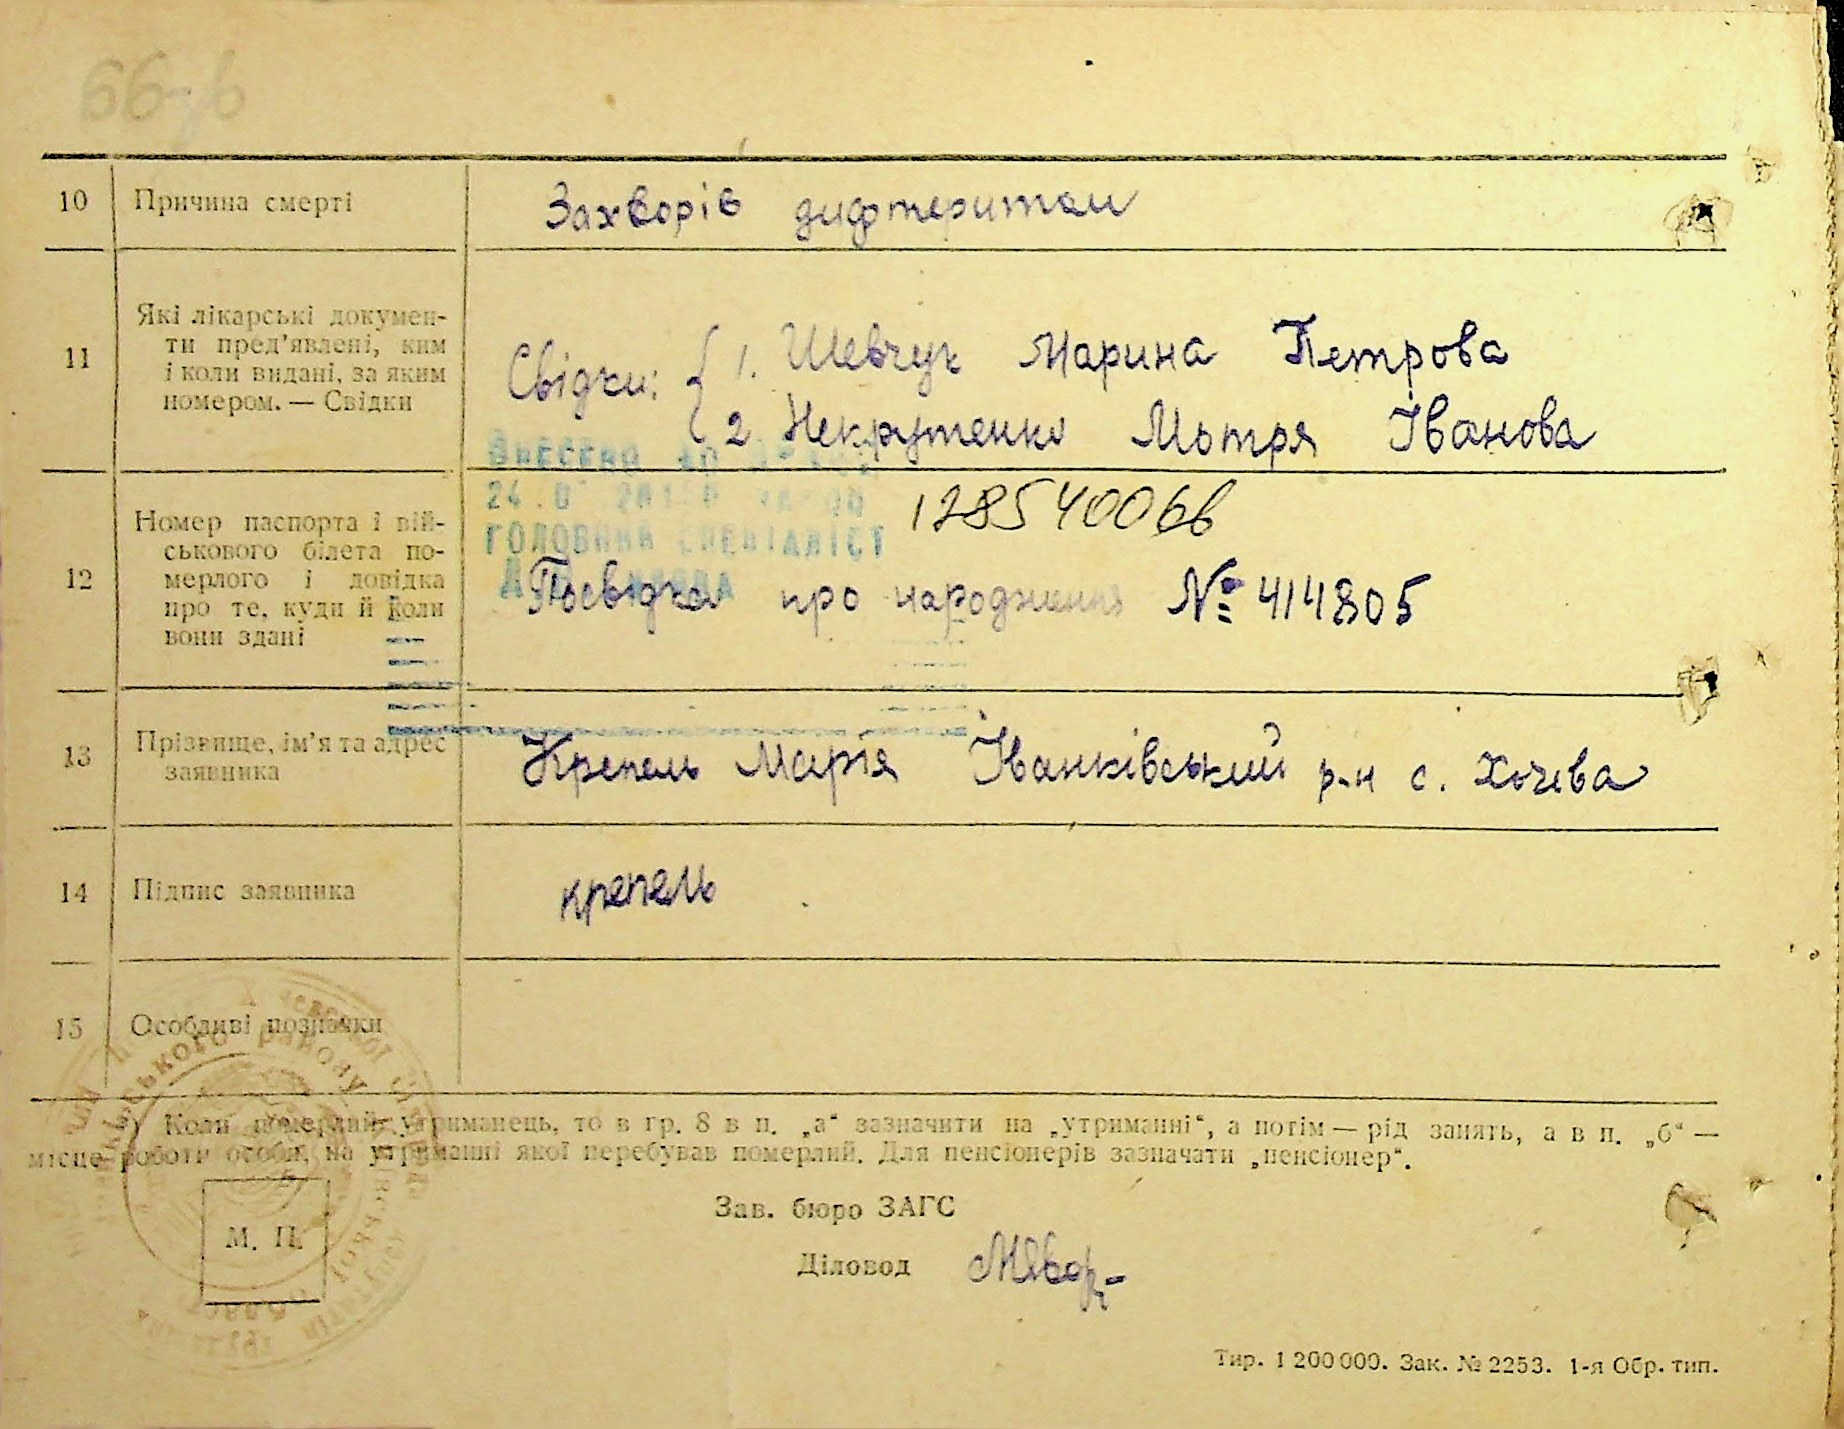 66-б
10 Причина смерті Захворів дифтеритом
11 Які лікарські докумен-
ти пред'явлені, ким
і коли видані, за яким
номером. — Свідки
Свідки: { 1. Шевчук Марина Петрова
2. Некрутенко Мотря Іванова
ВНЕСЕНО ДО
24.0
ГОЛОВНИЙ СПЕЦІАЛІСТ
128540066
12 Номер паспорта і вій-
ськового білета по-
мерлого і довідка
про те, куди й коли
вони здані
Посвідка про народження № 414805
13 Прізвище, ім'я та адрес
заявника
Крепель Марія Іванківський р-н с. Хочева
14 Підпис заявника крепель
15 Особливі позначки
Коли померлий утриманець, то в гр. 8 в п. „а" зазначити на „утриманні", а потім — рід занять, а в п. „б" —
місце роботи особи, на утриманні якої перебував померлий. Для пенсіонерів зазначати „пенсіонер".
Зав. бюро ЗАГС
М. П.
Діловод
Тир. 1 200 000. Зак. № 2253. 1-я Обр. тип.